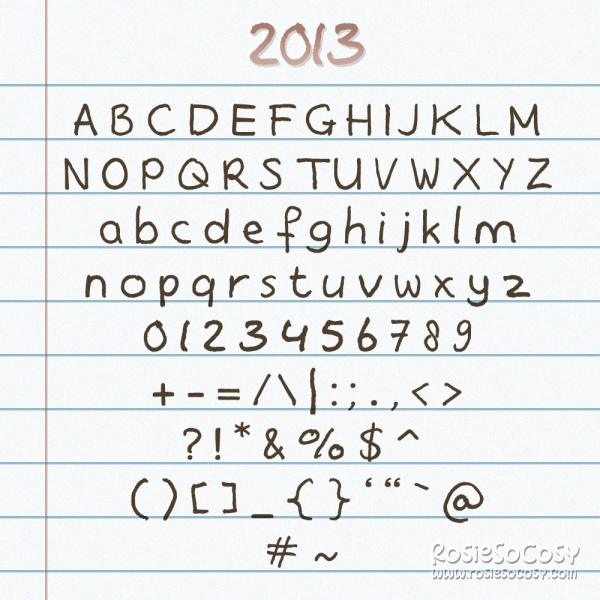 2013
A B C D E F G H I J K L M
N O P Q R S T U V W X Y Z
a b c d e f g h i j k l m
n o p q r s t u v w x y z
0 1 2 3 4 5 6 7 8 9
+ - = / \ | : ; . , < >
? ! * & % $ ^
( ) [ ] _ { } ‘ “ ` @
# ~
RosieSoCosy
www.rosiesocosy.com